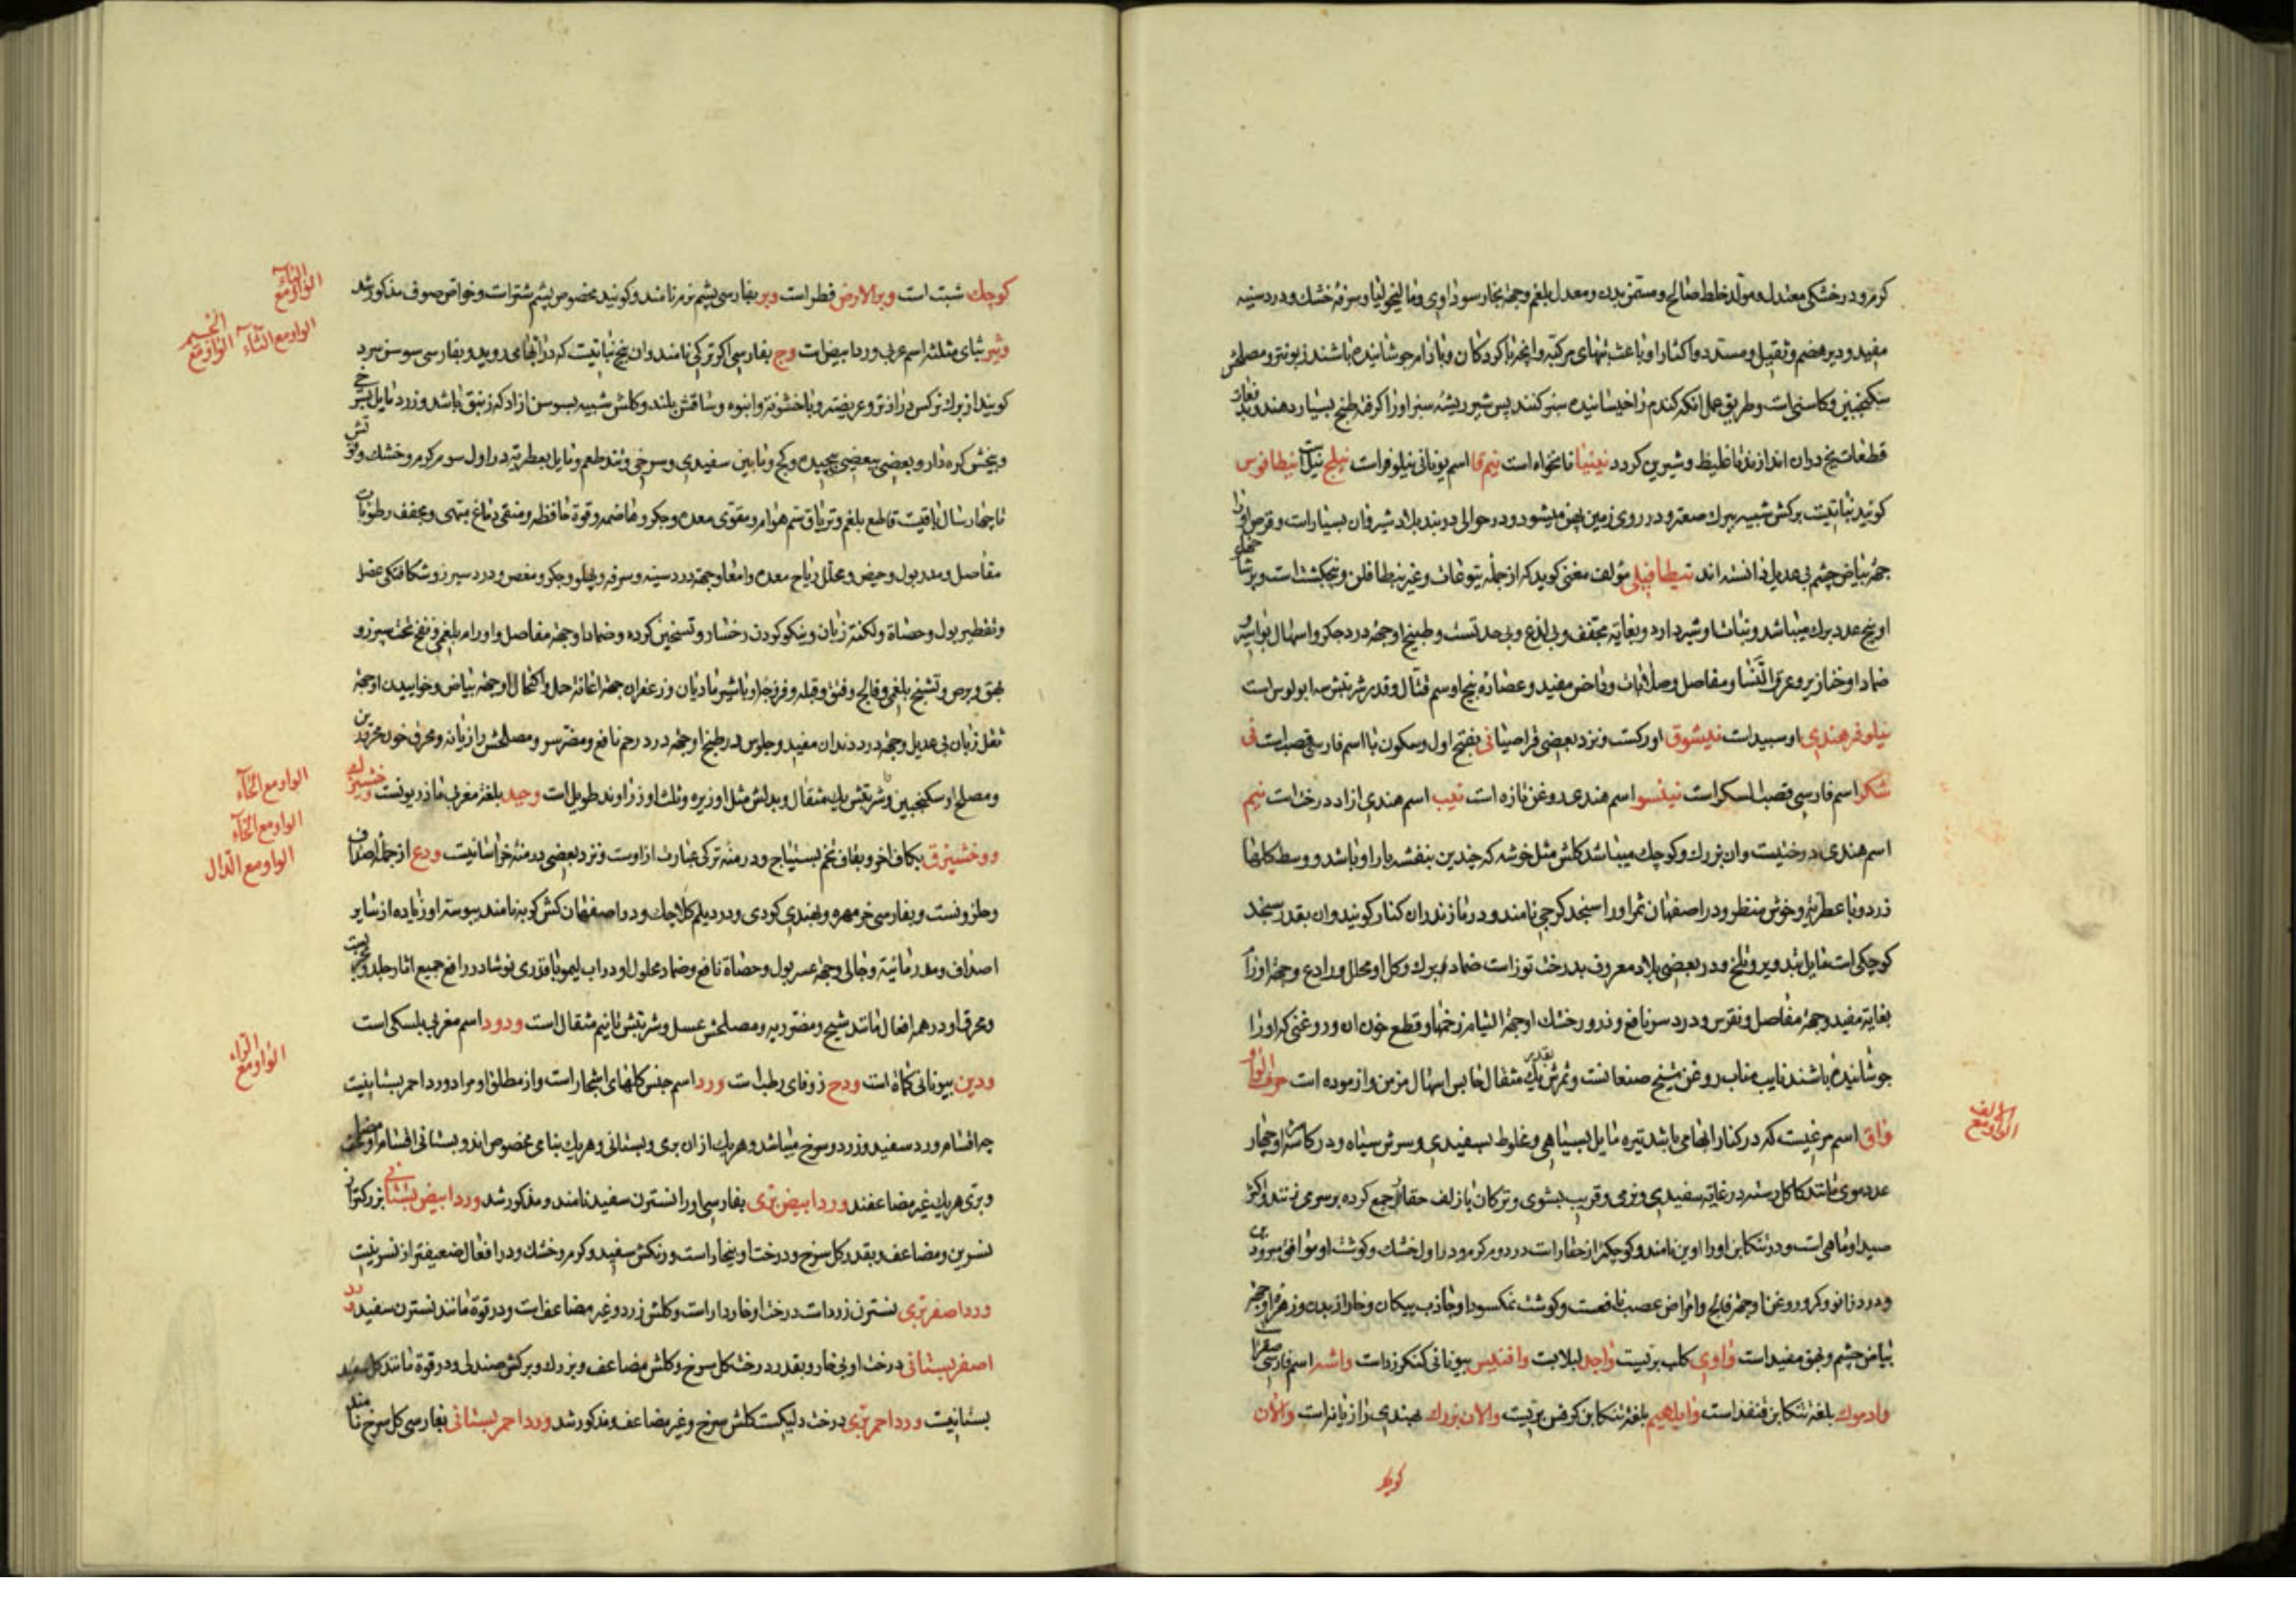 کرم و در خشکی معتدل و مولد خلط صالح و مسمن بدن و معدل بلغم و جهة بخار سوداوی و مالیخولیا و سرفه خشك و درد سینه
مفید و دیر هضم و ثقیل و مسدد و اکثار او باعث تبهای مرکبه و انچه با کردکان و بادام جوشانیده باشند زبونتر و مصلحش
سکنجبین و کاسنی است و طریق عمل انکه کندم را خیسانیده سبز کنند پس شیر ریشه سبز او را کرفته طبخ بسیار دهند و بعد
قطعات یخ دران اندازند تا غلیظ و شیرین کردد نینیا نانخواه است نیم قا اسم یونانی نیلوفر است نیلج نیل است نیطافوس
کویند نباتیست برکش شبیه ببرك صعتر و در روی زمین پهن میشود و در حوالی دربند بلاد شیروان بسیار است و قرص او را
جهة بیاض چشم بی عدیل دانسته اند نیطافیلی مؤلف مغنی کوید که از جمله یتوعات و غیر بنطافلن و پنجکشت است
او پنج عدد برك میباشد و نبات او شیر دارد و بغایة مجفف و بی لذع و بی حدتست و طبیخ او جهة درد جکر و اسهال بواسیر و
ضماد او خنازیر و عرق النسا و مفاصل و صلابات و داخس مفید و عصاره بیخ او سم قتال و قدر شربتش سه ابولوس است
نیلوفر هندی او سبید است نیشوق اورکست و نزد بعضی قراصیا نی بفتح اول و سکون یا اسم فارسی قصب است نی
شکر اسم فارسی قصب السکر است نینسو اسم هندی روغن تازه است نیب اسم هندی ازاد درخت است نیم
اسم هندی درختیست و ان بزرك و کوچك میباشد کلش مثل خوشه که چندین بنفشه با او باشد و وسط کلها
زرد و با عطریة و خوش منظر و در اصفهان ثمر او را سنجد کرجی نامند و در مازندران کنار کویند و ان بقدر سنجد
کوچکی است مایل بتدویر و تلخ و در بعضی بلاد معروف بدرخت توز است ضماد برك و کل او محلل و رادع و جهة اورام
بغایة مفید و جهة مفاصل و نقرس و درد سر نافع و ذرور خشك او جهة التیام زخمها و قطع خون ان و روغنی که او را
جوشانیده باشند نایب مناب روغن شیخ صنعانست و ثمرش بقدر یك مثقال حابس اسهال مزمن و ازموده است حرف الواو
الواو مع الالف
واق اسم مرغیست که در کنار ابها می باشد تیره مایل بسیاهی و مخلوط بسفیدی و سرش سیاه و در کاسه او چهار
عدد موی مانند کاکل رسته در غایة سفیدی و نرمی و قریب بشوی و ترکان با زلف حقار جمع کرده بر سر می زنند و اکثر
صید او ماهی است و در تنکابن او را اوین نامند و کوچکتر از حقار است در دوم کرم و در اول خشك و کوشت او موافق مبرودین
و درد زانو و کرده و روغن او جهة فالج و امراض عصب نافعست و کوشت نمکسود او جاذب پیکان و خار از بدن و زهره او جهة
بیاض چشم و بهق مفید است واوی کلب بریست واجد لبلابست واقنتیس بیونانی کنکرزد است واشه اسم فارسی صقر است
وادموك بلغة تنکابن قنفذ است وایلاهیم بلغة تنکابن کرفس بریست والان بزرك بهندی رازیانه است والان
کوچك
الواو مع الباء
کوچك شبت است وبر الارض فطر است وبر بفارسی پشم نرم نامند و کویند مخصوص پشم شتر است و خواص صوف مذکور شد
الواو مع الثاء الواو مع الجیم
وثیر بثای مثلثه اسم عربی ورد ابیض است وج بفارسی اکر ترکی نامند و ان بیخ نباتیست که در ابها می روید و بفارسی سوسن سرد
کویند از برك نرکس درازتر و عریضتر و با خشونة و انبوه و ساقش بلند و کلش شبیه بسوسن ازاد که زنبق باشد و زرد مایل بسرخی
و بیخش کره دار و بعضی ببعضی پیچیده و کج و مابین سفیدی و سرخی و تند طعم و مایل بعطریة در اول سوم کرم و خشك و قوتش
تا چهار سال باقیست قاطع بلغم و تریاق سم هوام و مقوی معده و جکر و هاضمه و قوة حافظه و منقی دماغ و مشهی و مجفف رطوبات
مفاصل و مدر بول و حیض و محلل ریاح معده و امعا و جهة درد سینه و سرفه و پهلو و جکر و مغص و درد سپرز و شکافتکی عضل
و تقطیر بول و حصاة و لکنة زبان و نیکو کردن رخسار و تسخین کرده و ضماد او جهة مفاصل و اورام بلغمی و نفخ تحت سپرز و
بهق و برص و تشنج بلغمی و فالج و فتق و قیله و فرزجه او با شیر مادیان و زعفران جهة اعانة حمل و اکتحال او جهة بیاض و خواییدن او جهة
ثقل زبان بی عدیل و جهة درد دندان مفید و جلوس در طبیخ او جهة درد رحم نافع و مضر سر و مصلحش رازیانه و محرق خون محرورین
الواو مع الحاء
و مصلح او سکنجبین و شربتش یك مثقال و بدلش مثل او زیره و ثلث او زراوند طویل است وحید بلغة مغربی مازریونست وخشیرك
الواو مع الخاء
و وخشیرق بکاف اخر و بقاف تخم بستیناج و درمنه ترکی عبارت از اوست و نزد بعضی درمنه خراسانیست ودع از جمله اصداف
الواو مع الدال
و حلزونست و بفارسی خرمهره و بهندی کودی و در دیلم کلاچك و در اصفهان کش کوبه نامند یبوسة او زیاده از سایر
اصداف و مدر مانیة و جالی و جهة عسر بول و حصاة نافع و ضماد محلول او در اب لیمو با قدری نوشادر رافع جمیع اثار جلد و مجربست
و محرق او در همه افعال مانند شیح و مضر ریه و مصلحش عسل و شربتش تا نیم مثقال است ودود اسم مغربی بلسکی است
الواو مع الراء
ودین بیونانی کماة است ودح زوفای رطب است ورد اسم جنس کلهای اشجار است و از مطلق او مراد ورد احمر بستانیست
چه اقسام ورد سفید و زرد و سرخ میباشد و هریك ازان بری و بستانی و هریك بنای مخصوص اند و بستانی اقسام او مضاعف
و بری هریك غیر مضاعفند ورد ابیض بری بفارسی او را نسترن سفید نامند و مذکور شد ورد ابیض بستانی بزرکتر از
نسرین و مضاعف و بقدر کل سرخ و درخت او بیخار است و رنکش سفید و کرم و خشك و در افعال ضعیفتر از نسرینیست
ورد اصفر بری نسترن زرد است درخت او خاردار است و کلش زرد و غیر مضاعف است و در قوة مانند نسترن سفید ورد
اصفر بستانی درخت او بی خار و بقدر درخت کل سرخ و کلش مضاعف و بزرك و برکش صندلی و در قوة مانند کل سفید
بستانیست ورد احمر بری درخت دلیکست کلش سرخ و غیر مضاعف و مذکور شد ورد احمر بستانی بفارسی کل سرخ نامند